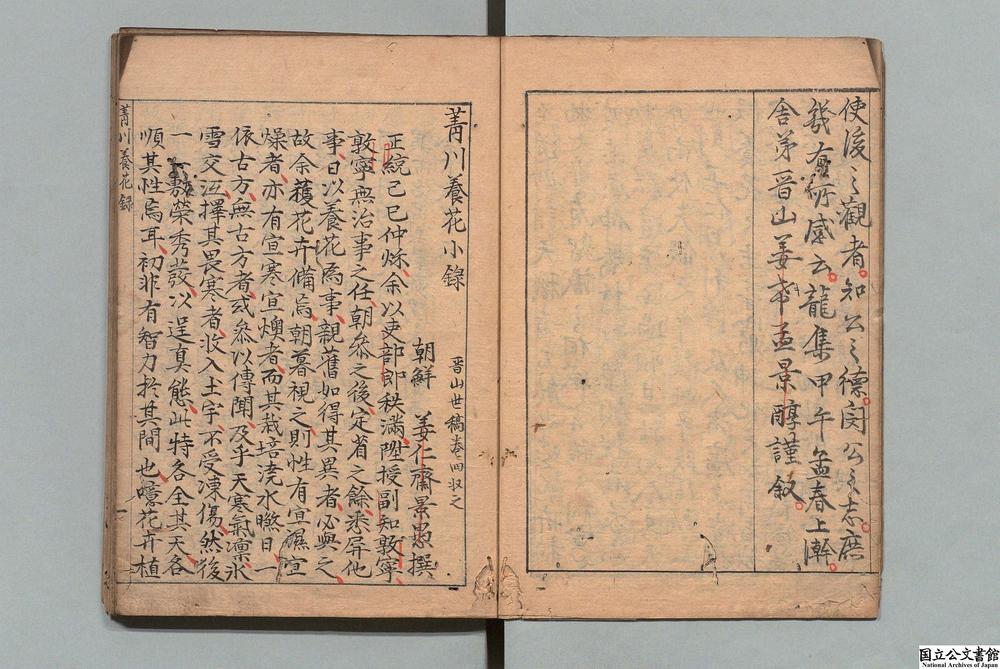 使後之觀者知公之德閔公之志庶
幾有所感云龍集甲午孟春上澣
舍弟晋山姜希孟景醇謹叙
菁川養花小錄
晋山世稿卷四収之
朝鮮 姜仁齋景愚撰
正統己巳仲秌余以吏部郎秩滿陞授副知敦寧
敦寧無治事之任朝叅之後定省之餘悉屏他
事日以養花爲事親舊如得其異者必與之
故余獲花卉備焉朝暮視之則性有宜濕宜
燥者亦有宜寒宜燠者而其栽培澆水曬日一
依古方無古方者或叅以傳聞及乎天寒氣凛氷
雪交沍擇其畏寒者收入土宇不受凍傷然後
一敷榮秀發以逞真態此特各全其天各
順其性焉耳初非有智力於其間也噫花卉植
菁川養花錄
一
国立公文書館
National Archives of Japan